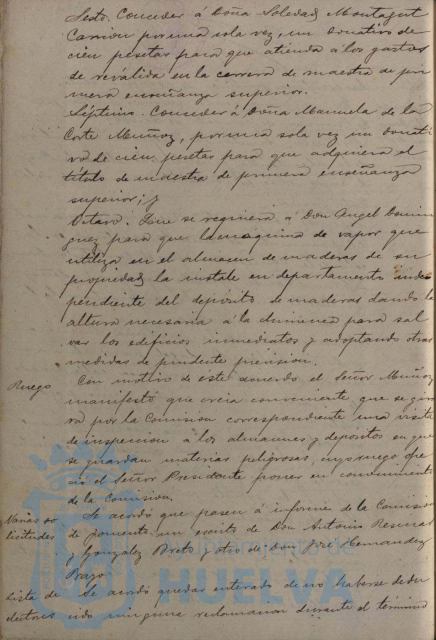 Sesto. Conceder á Doña Soledad Montagut
Carrion por una sola vez, un donativo de
cien pesetas para que atienda a los gastos
de reválida en la carrera de maestra de pri
mera enseñanza superior.
Séptimo. Conceder á Doña Manuela de la
Corte Muñoz, por una sola vez un donati
vo de cien pesetas para que adquiera el
título de maestra de primera enseñanza
superior; y
Octavo. Que se requiera á Don Angel Domin
guez para que la maquina de vapor que
utiliza en el almacen de maderas de su
propiedad la instale en departamento inde
pendiente del depósito de maderas dando la
altura necesaria á la chimenea para sal
var los edificios inmediatos y adoptando otras
medidas de prudente prevision.
Ruego
Con motivo de este acuerdo el Señor Muñoz
manifestó que creia conveniente que se gira
ra por la Comision correspondiente una visita
de inspeccion á los almacenes y depósitos en que
se guardan materias peligrosas, cuyo ruego ofre
ció el Señor Presidente poner en conocimiento
de la Comision.
Varias so
licitudes
Se acordó que pasen á informe de la Comision
de Fomento un escrito de Don Antonio
y Gonzalez Prieto y otro de Don José Hernandez
Bravo
Lista de
electores
Se acordó quedar enterado de no haberse dedu
cido ninguna reclamacion durante el término
Ayuntamiento de
HUELVA